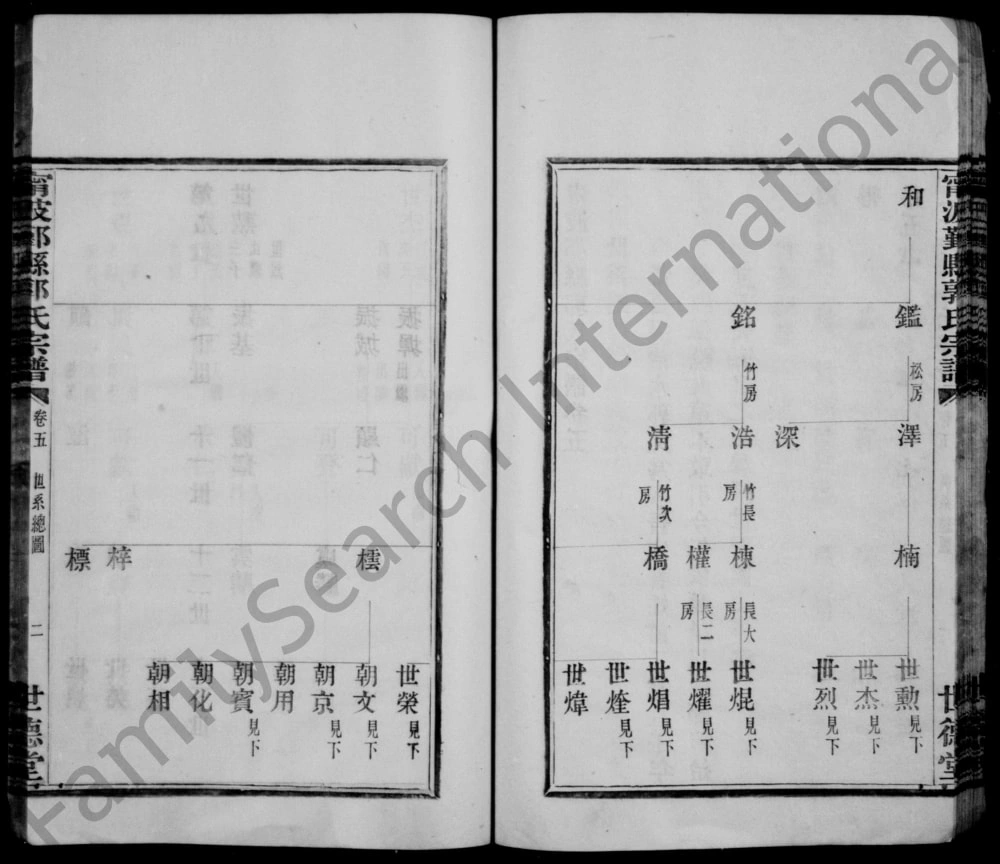 寧波鄞縣郭氏宗譜
世德堂
和
鑑 松房
銘 竹房
澤
深
浩 竹長房
淸 竹次房
楠
棟 長大房
權 長二房
橋
世勲 見下
世杰 見下
世烈 見下
世焜 見下
世燿 見下
世焻 見下
世烇 見下
世煒
檽
梓
標
世榮 見下
朝文 見下
朝京 見下
朝用
朝賓 見下
朝化
朝相
卷五 世系總圖 二
世德堂
FamilySearch International